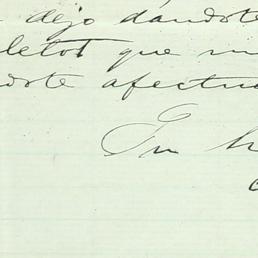 dejo dándote
letos que mi
dote afectuo
Tu h